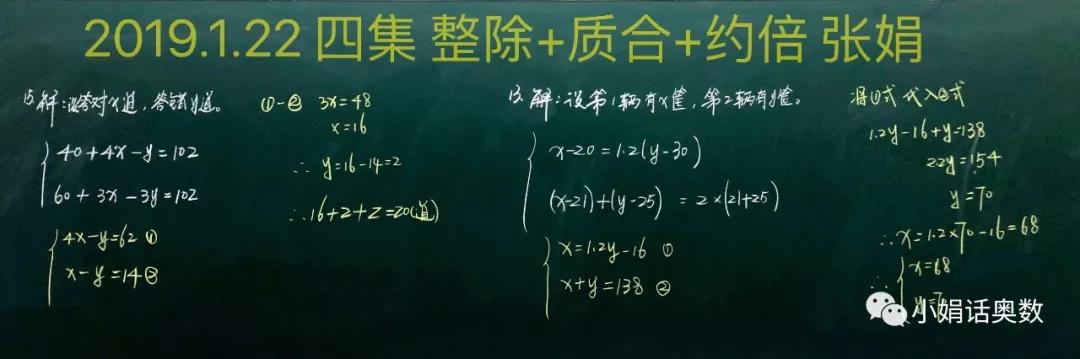 2019.1.22 四集 整除+质合+约倍 张娟
15.解:设答对x道,答错y道。
40+4x-y=102
60+3x-3y=102
4x-y=62 ①
x-y=14 ②
①-② 3x=48
x=16
∴y=16-14=2
∴16+2+2=20(道)
13.解:设第1辆有x筐,第2辆有y筐。
x-20=1.2(y-30)
(x-21)+(y-25) = 2×(21+25)
x=1.2y-16 ①
x+y=138 ②
将①式代入②式
1.2y-16+y=138
2.2y=154
y=70
∴x=1.2×70-16=68
∴ x=68
小娟话奥数